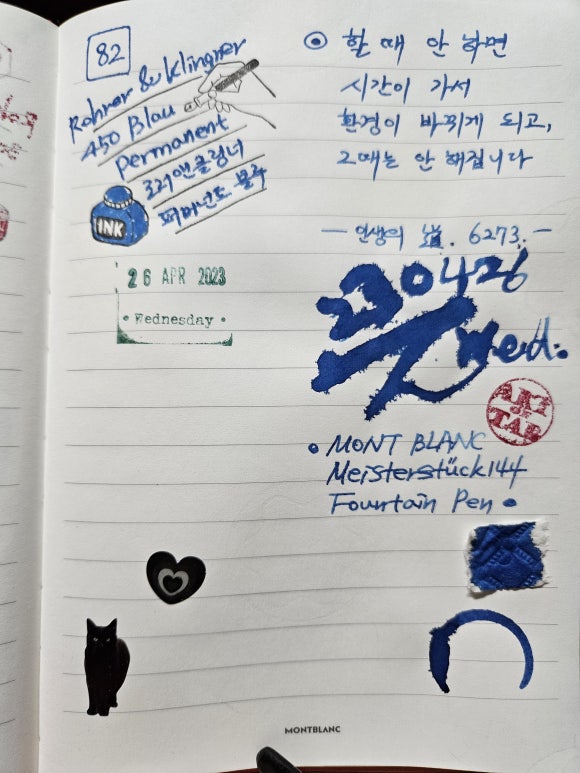 82
Rohrer & Klingner
450 Blau
permanent
로러앤클링너
퍼머넌트 블루
INK
26 APR 2023
• Wednesday •
⊙ 할 때 안 하면
시간이 가서
환경이 바뀌게 되고,
그때는 안 해집니다
— 인생의 道. 6273. —
230426
Wed.
ART
TAE
• MONT BLANC
Meisterstück 144
Fountain Pen •
MONTBLANC